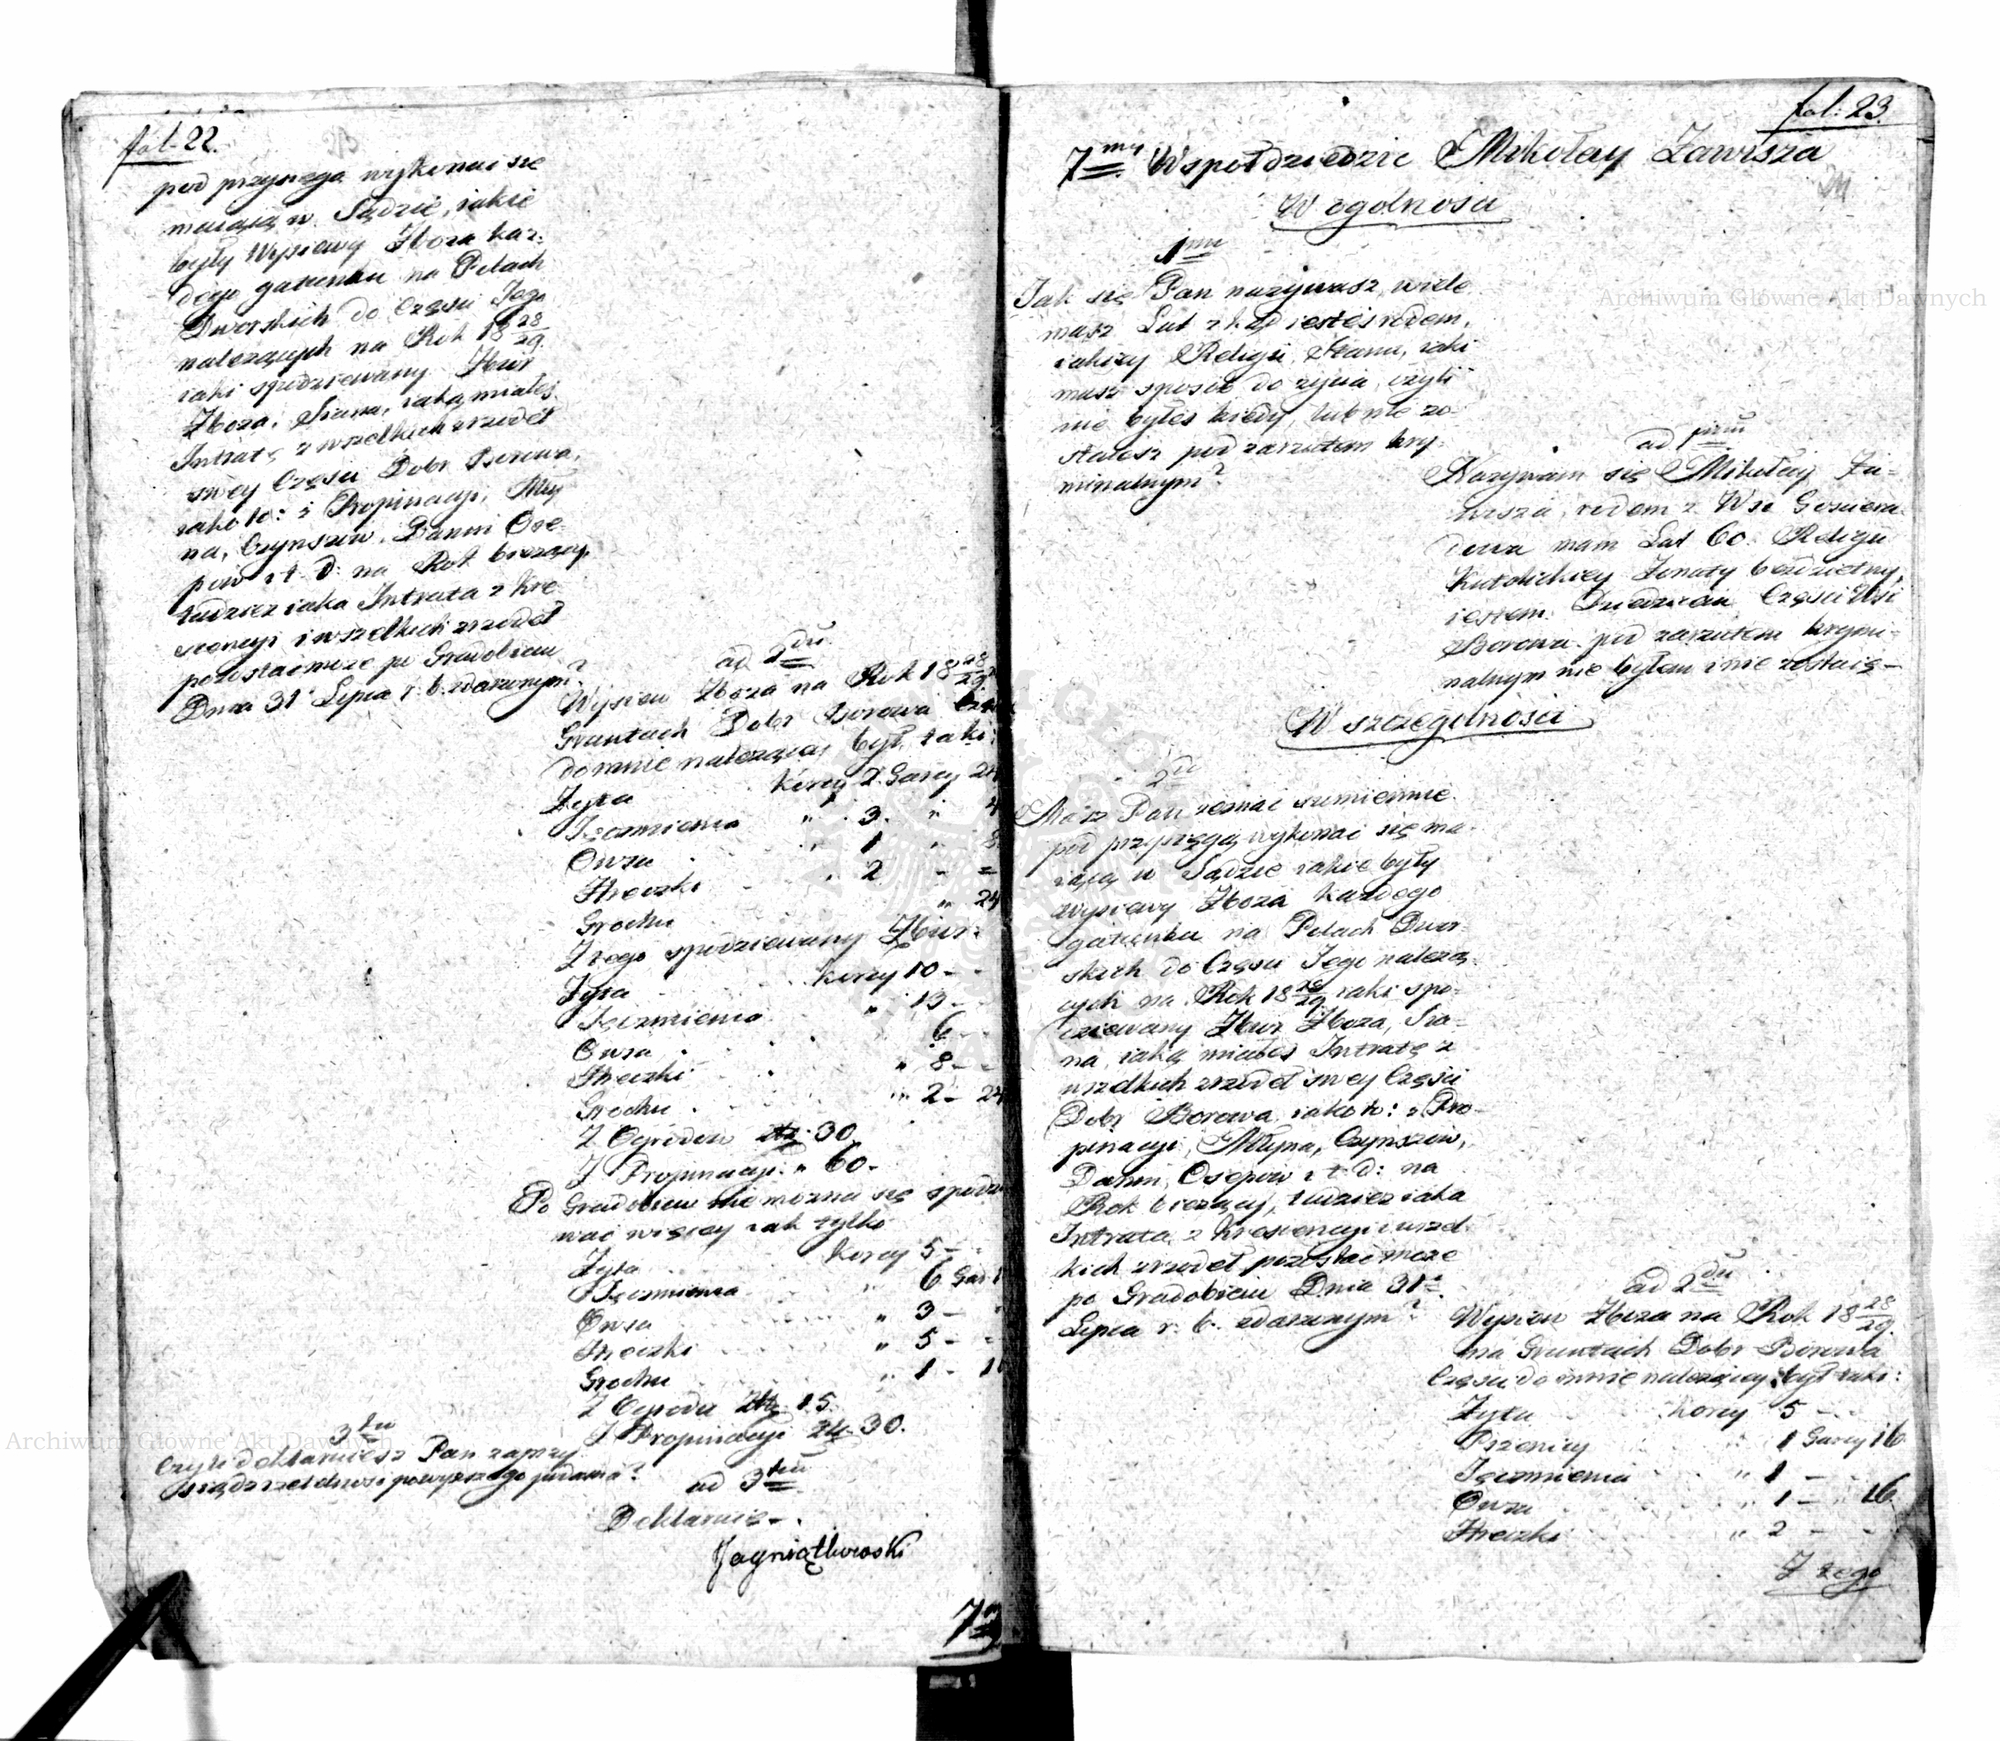 fol. 22.
pod przysięgą wykonać się
maiącą w Sądzie, iakie
były Wysiewy Zboża każ-
dego gatunku na Polach
Dworskich do Części Jego
należących na Rok 18 28/29
iaki spodziewany Zbiór
Zboża, Siana, iaką miałeś
Intratę z wszelkich zrzodeł
swey Części Dobr Borowa,
iako to: z Propinacyi, Mły-
na, Czynszow, Danin Ose-
pow i t. d: na Rok bieżący,
tudzież iaka Intrata z kre-
scencyi i wszelkich zrzodeł
pozostać może po Gradobiciu
Dnia 31 Lipca r. b. zdarzonym?
ad 2du
Wysiew Zboża na Rok 18 28/29
Gruntach Dobr Borowa
do mnie należącey był taki:
Żyta korcy 2. Garcy 24
Jęczmienia " 3. " 4
Owsa " 1 " 8
Hreczki " 2 - =
Grochu " 24
Z tego spodziewany Zbiór:
Żyta korcy 10 - -
Jęczmienia " 13 -
Owsa 6 -
Hreczki " 8 - -
Grochu " 2 - 24
Z Ogrodow złp. 30
Z Propinacyi " 60 -
Po Gradobiciu nie można się spodzie
wać więcey iak tylko
Żyta korcy 5 -
Jęczmienia " 6 Gar
Owsa " 3 -
Hreczki " 5 - -
Grochu " 1 -
Z Ogrodu Złp. 15.
Z Propinacyi Zł. 30.
3tio
Czyli deklaruiesz Pan zaprzy
siądz rzetelność powyższego podania?
ad 3tiu
Deklaruię - .
Jagniątkowski
7m
fol: 23.
7my Wspołdziedzic Mikołay Zawisza
24
W ogolności
1mu
Jak się Pan nazywasz, wiele
masz Lat zkąd iesteś rodem,
iakiey Religii, Stanu, iaki
masz sposob do życia, czyli
nie byłeś kiedy, lub nie zo-
staiesz pod zarzutem kry-
minalnym?
ad 1mu
Nazywam się Mikołay Za-
wisza, rodem z Wsi Gościera
dowa mam Lat 60. Religii
Katolickiey Żonaty bezdzietny,
iestem Dziedzicem Części Wsi
Borowa pod zarzutem krymi-
nalnym nie byłem i nie zostaię -
W szczegolności
2do
Masz Pan zeznać sumiennie
pod przysięgą wykonać się ma-
iącą w Sądzie iakie były
wysiewy Zboża każdego
gatunku na Polach Dwor-
skich do Części Jego należą-
cych na Rok 18 28/29 iaki spo-
dziewany Zbiór Zboża, Sia-
na, iaką miałeś Intratę z
wszelkich zrzodeł swey Części
Dobr Borowa iako to: z Pro-
pinacyi, Młyna, Czynszow,
Danin, Osepow i t. d: na
Rok bieżący, tudzież iaka
Intrata z krescencyi i wszel-
kich zrzodeł pozostać może
po Gradobiciu Dnia 31
Lipca r. b. zdarzonym?
ad 2du
Wysiew Zboża na Rok 18 28/29.
na Gruntach Dobr Borowa
Części do mnie należącey był taki:
Żyta korcy 5 -
Pszenicy " 1 Garcy 16
Jęczmienia " 1 - -
Owsa " 1 - " 16.
Hreczki " 2 - -
Z tego
Archiwum Główne Akt Dawnych
Archiwum Główne Akt Dawnych